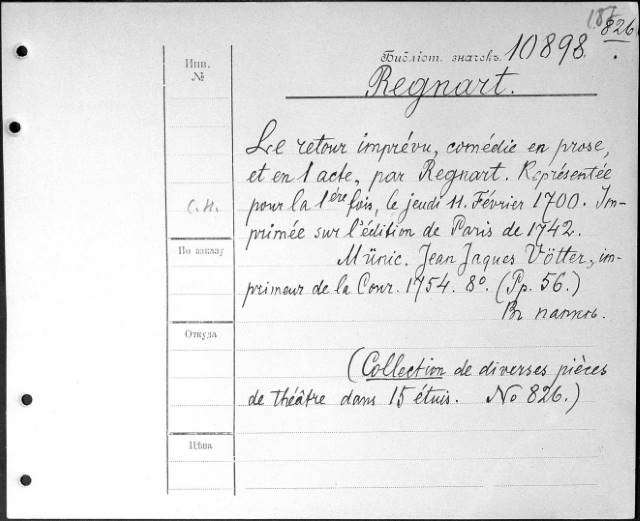 826
Библіот. значекъ 10898.
Regnart.
Инв.
№
Le retour imprévu, comédie en prose,
et en 1 acte, par Regnart. Représentée
С.Н.
pour la 1ère fois, le jeudi 11. Février 1700. Im-
primée sur l'édition de Paris de 1742.
По заказу
Münic. Jean Jaques Vötter, im-
primeur de la Cour. 1754. 8º. (Pp. 56.)
Въ папкѣ.
Откуда
(Collection de diverses pièces
de théâtre dans 15 étuis. No 826.)
Цѣна